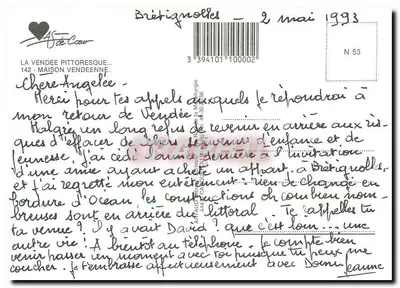 Brétignolles - 2 mai 1993
As de Cœur
3 394101 100002
N 53
LA VENDEE PITTORESQUE...
142 - MAISON VENDEENNE.
Chère Angelée -
Merci pour tes appels auxquels je répondrai à
mon retour de Vendée.
Malgré un long refus de revenir en arrière aux ris-
ques d'effacer de jolis souvenirs d'enfance et de
jeunesse, j'ai cédé l'année dernière à l'invitation
d'une amie ayant acheté un appart. à Brétignolles,
et j'ai regretté mon entêtement : rien de changé en
bordure d'Océan, les constructions oh combien nom-
breuses sont en arrière du littoral - Te rappelles tu
ta venue ? Il y avait David ? que c'est loin... une
autre vie ! A bientôt au téléphone. Je compte bien
venir passer un moment avec toi puisque tu peux me
coucher. Je t'embrasse affectueusement avec
Jeanne